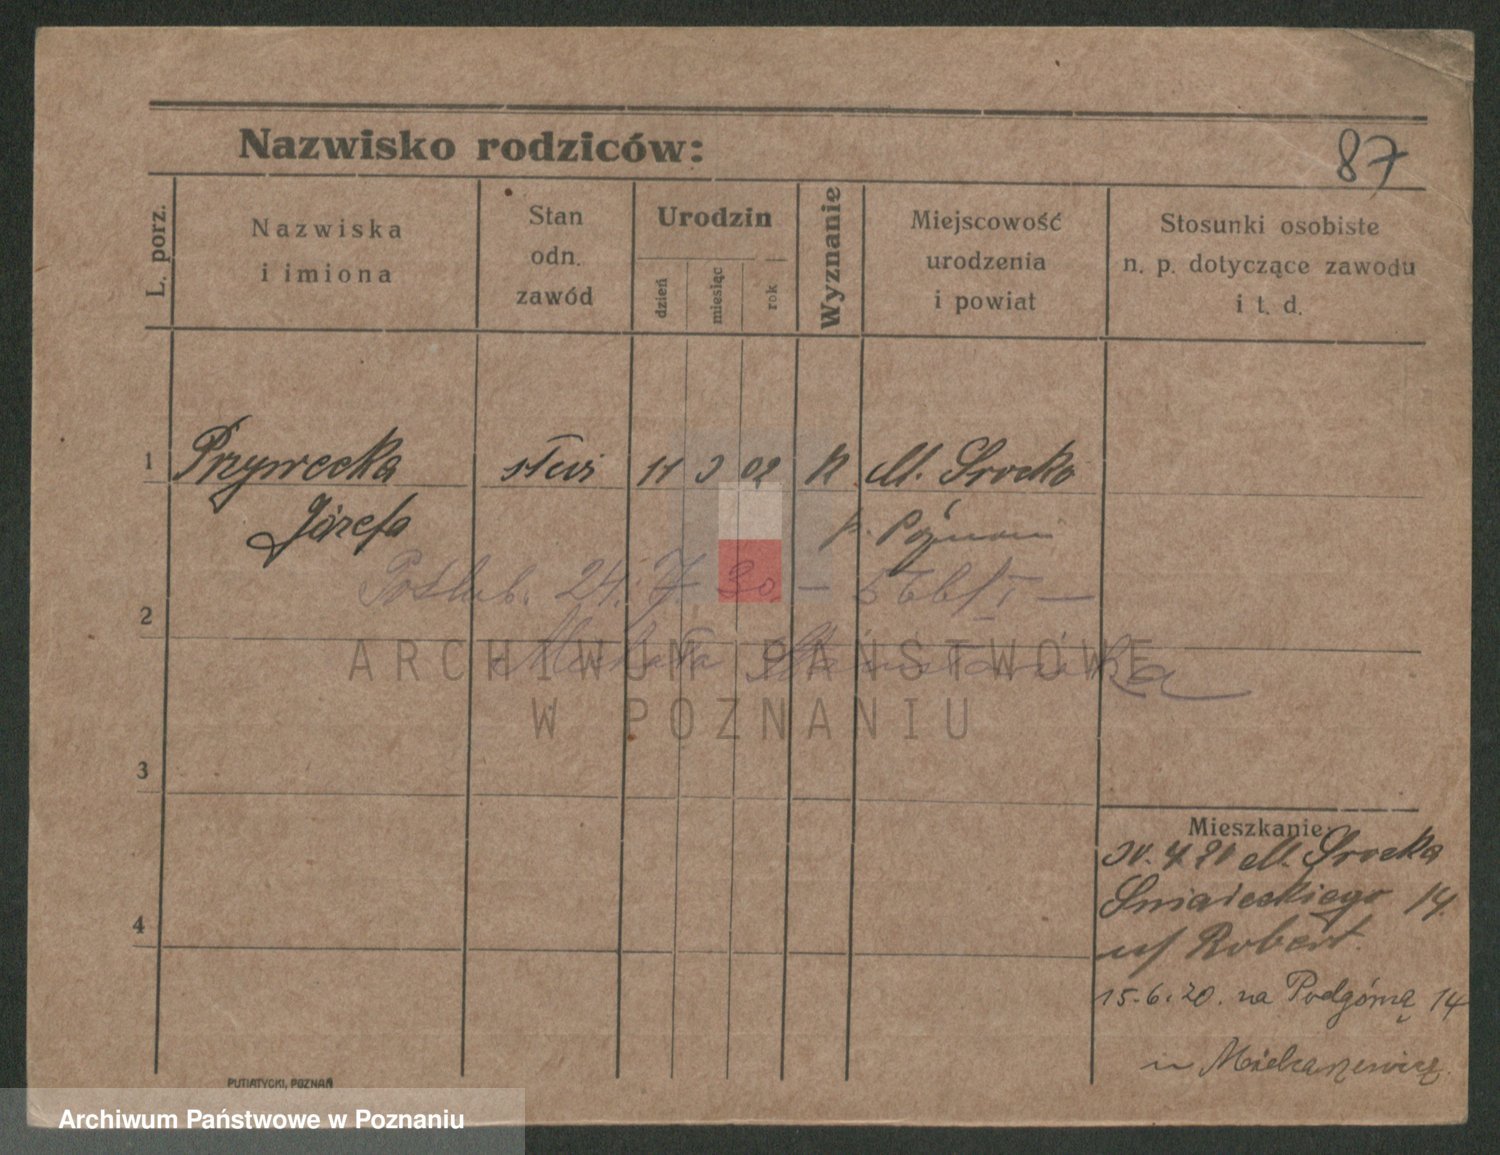 Nazwisko rodziców:
87
L. porz.
Nazwiska
i imiona
Stan
odn.
zawód
Urodzin
dzień
miesiąc
rok
Wyznanie
Miejscowość
urodzenia
i powiat
Stosunki osobiste
n. p. dotyczące zawodu
i t. d.
1 Przywecka służ 11 3 02 R M. Srocko
Józefa p. Poznań
Poślub. 24. 7. 30. –
2
ARCHIWUM PAŃSTWOWE
W POZNANIU
3
4
Mieszkanie:
M. Srocka
Śniadeckiego 14
Robert.
15.6.20. na Podgórną 14
PUTIATYCKI, POZNAŃ
Archiwum Państwowe w Poznaniu